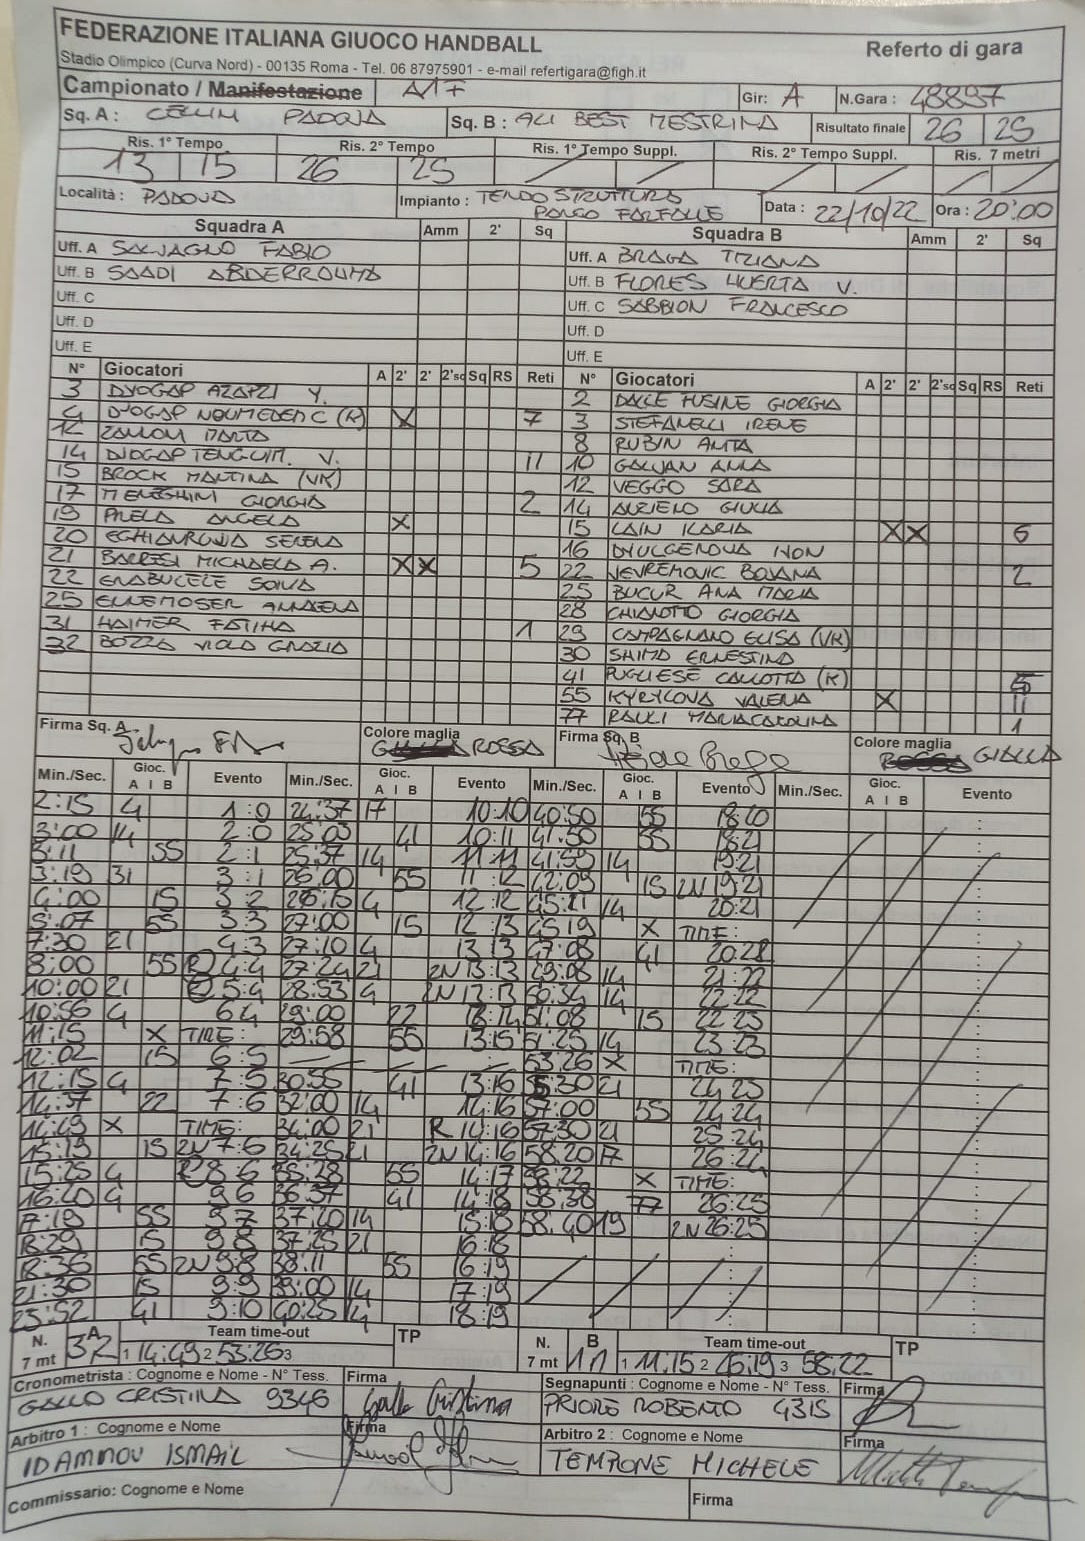 FEDERAZIONE ITALIANA GIUOCO HANDBALL
Referto di gara
Stadio Olimpico (Curva Nord) - 00135 Roma - Tel. 06 87975901 - e-mail refertigara@figh.it
Campionato / Manifestazione A1F Gir: A N.Gara : 48897
Sq. A : CELLINI PADOVA Sq. B : ALI BEST MESTRINO Risultato finale 26 25
Ris. 1° Tempo Ris. 2° Tempo Ris. 1° Tempo Suppl. Ris. 2° Tempo Suppl. Ris. 7 metri
13 15 26 25
Località : PADOVA Impianto : TENDOSTRUTTURA PARCO FARFALLE Data : 22/10/22 Ora : 20:00
Squadra A Amm 2' Sq Squadra B Amm 2' Sq
Uff. A SALVAGNO FABIO Uff. A BRAGA TIZIANA
Uff. B SAADI ABDERROUMA Uff. B FLORES HUERTA V.
Uff. C Uff. C SABBION FRANCESCO
Uff. D Uff. D
Uff. E Uff. E
N° Giocatori A 2' 2' 2'sq Sq RS Reti N° Giocatori A 2' 2' 2'sq Sq RS Reti
3 DJOGAP AZAPZI Y. 2 DALLE FUSINE GIORGIA
4 DJOGAP NOUMEDEM C (K) X 7 3 STEFANELLI IRENE
12 ZANON MARTA 8 RUBIN ANITA
14 DJOGAP TENGUIM. V. 11 10 GALVAN ANNA
15 BROCK MARTINA (VK) 12 VEGGO SARA
17 MENEGHINI GIORGIA 2 14 AUZIERO GIULIA
19 PRELA ANGELA X 15 LAIN ILARIA X X 6
20 EGHIANRUWA SERENA 16 DYULGEROVA IVON
21 BARRESI MICHAELA A. X X 5 22 JEVREMOVIC BOJANA 2
22 ENABULELE SONIA 25 BUCUR ANA MARIA
25 EUNEMOSER ANNALENA 28 CHIAROTTO GIORGIA
31 HAIMER FATIHA 1 29 CAMPAGNARO ELISA (VK)
32 BOZZA VIOLA GRAZIA 30 SHIMA ERNESTINA
41 PUGLIESE CARLOTTA (K) 5
55 KYRYLOVA VALERIA X 11
77 RAULI MARIACAROLINA 1
Firma Sq. A Colore maglia ROSSA Firma Sq. B Colore maglia GIALLA
Min./Sec. Gioc. A I B Evento Min./Sec. Gioc. A I B Evento Min./Sec. Gioc. A I B Evento Min./Sec. Gioc. A I B Evento
2:15 4 1:0 24:37 17 10:10 40:50 55 18:20
3:00 14 2:0 25:03 41 10:11 41:50 55 18:21
3:11 55 2:1 25:37 14 11:11 41:59 14 19:21
3:19 31 3:1 26:00 55 11:12 42:09 15 2N 19:21
4:00 15 3:2 26:15 4 12:12 45:21 14 20:21
5:07 55 3:3 27:00 15 12:13 45:19 X TIME:
7:30 21 4:3 27:10 4 13:13 47:08 41 20:22
8:00 55 R 4:4 27:24 21 2N 13:13 49:08 14 21:22
10:00 21 R 5:4 28:53 4 2N 13:13 50:34 14 22:22
10:56 4 6:4 29:00 22 13:14 51:08 15 22:23
11:15 X TIME: 29:58 55 13:15 51:25 14 23:23
12:02 15 6:5 53:26 X TIME:
12:15 4 7:5 30:55 41 13:16 55:30 21 24:23
14:37 22 7:6 32:00 14 14:16 57:00 55 24:24
14:49 X TIME: 34:00 21 R 14:16 57:30 21 25:24
15:19 15 2N 7:6 34:25 21 2N 14:16 58:20 17 26:24
15:25 4 R 8:6 35:28 55 14:17 58:22 X TIME:
16:20 4 9:6 36:37 41 14:18 58:38 77 26:25
17:19 55 9:7 37:20 14 15:18 58:40 19 2N 26:25
18:29 15 9:8 37:25 21 16:18
18:36 55 2N 9:8 38:11 55 16:19
21:30 15 9:9 39:00 14 17:19
23:52 41 9:10 40:25 14 18:19
N. 7 mt A 3R Team time-out 1 14:49 2 53:26 3 TP N. 7 mt B 1R Team time-out 1 11:15 2 45:19 3 58:22 TP
Cronometrista : Cognome e Nome - N° Tess. Firma Segnapunti : Cognome e Nome - N° Tess. Firma
GALLO CRISTINA 9346 Gallo Cristina PRIORE ROBERTO 4315
Arbitro 1 : Cognome e Nome Firma Arbitro 2 : Cognome e Nome Firma
IDAMMOU ISMAIL TEMPONE MICHELE
Commissario: Cognome e Nome Firma